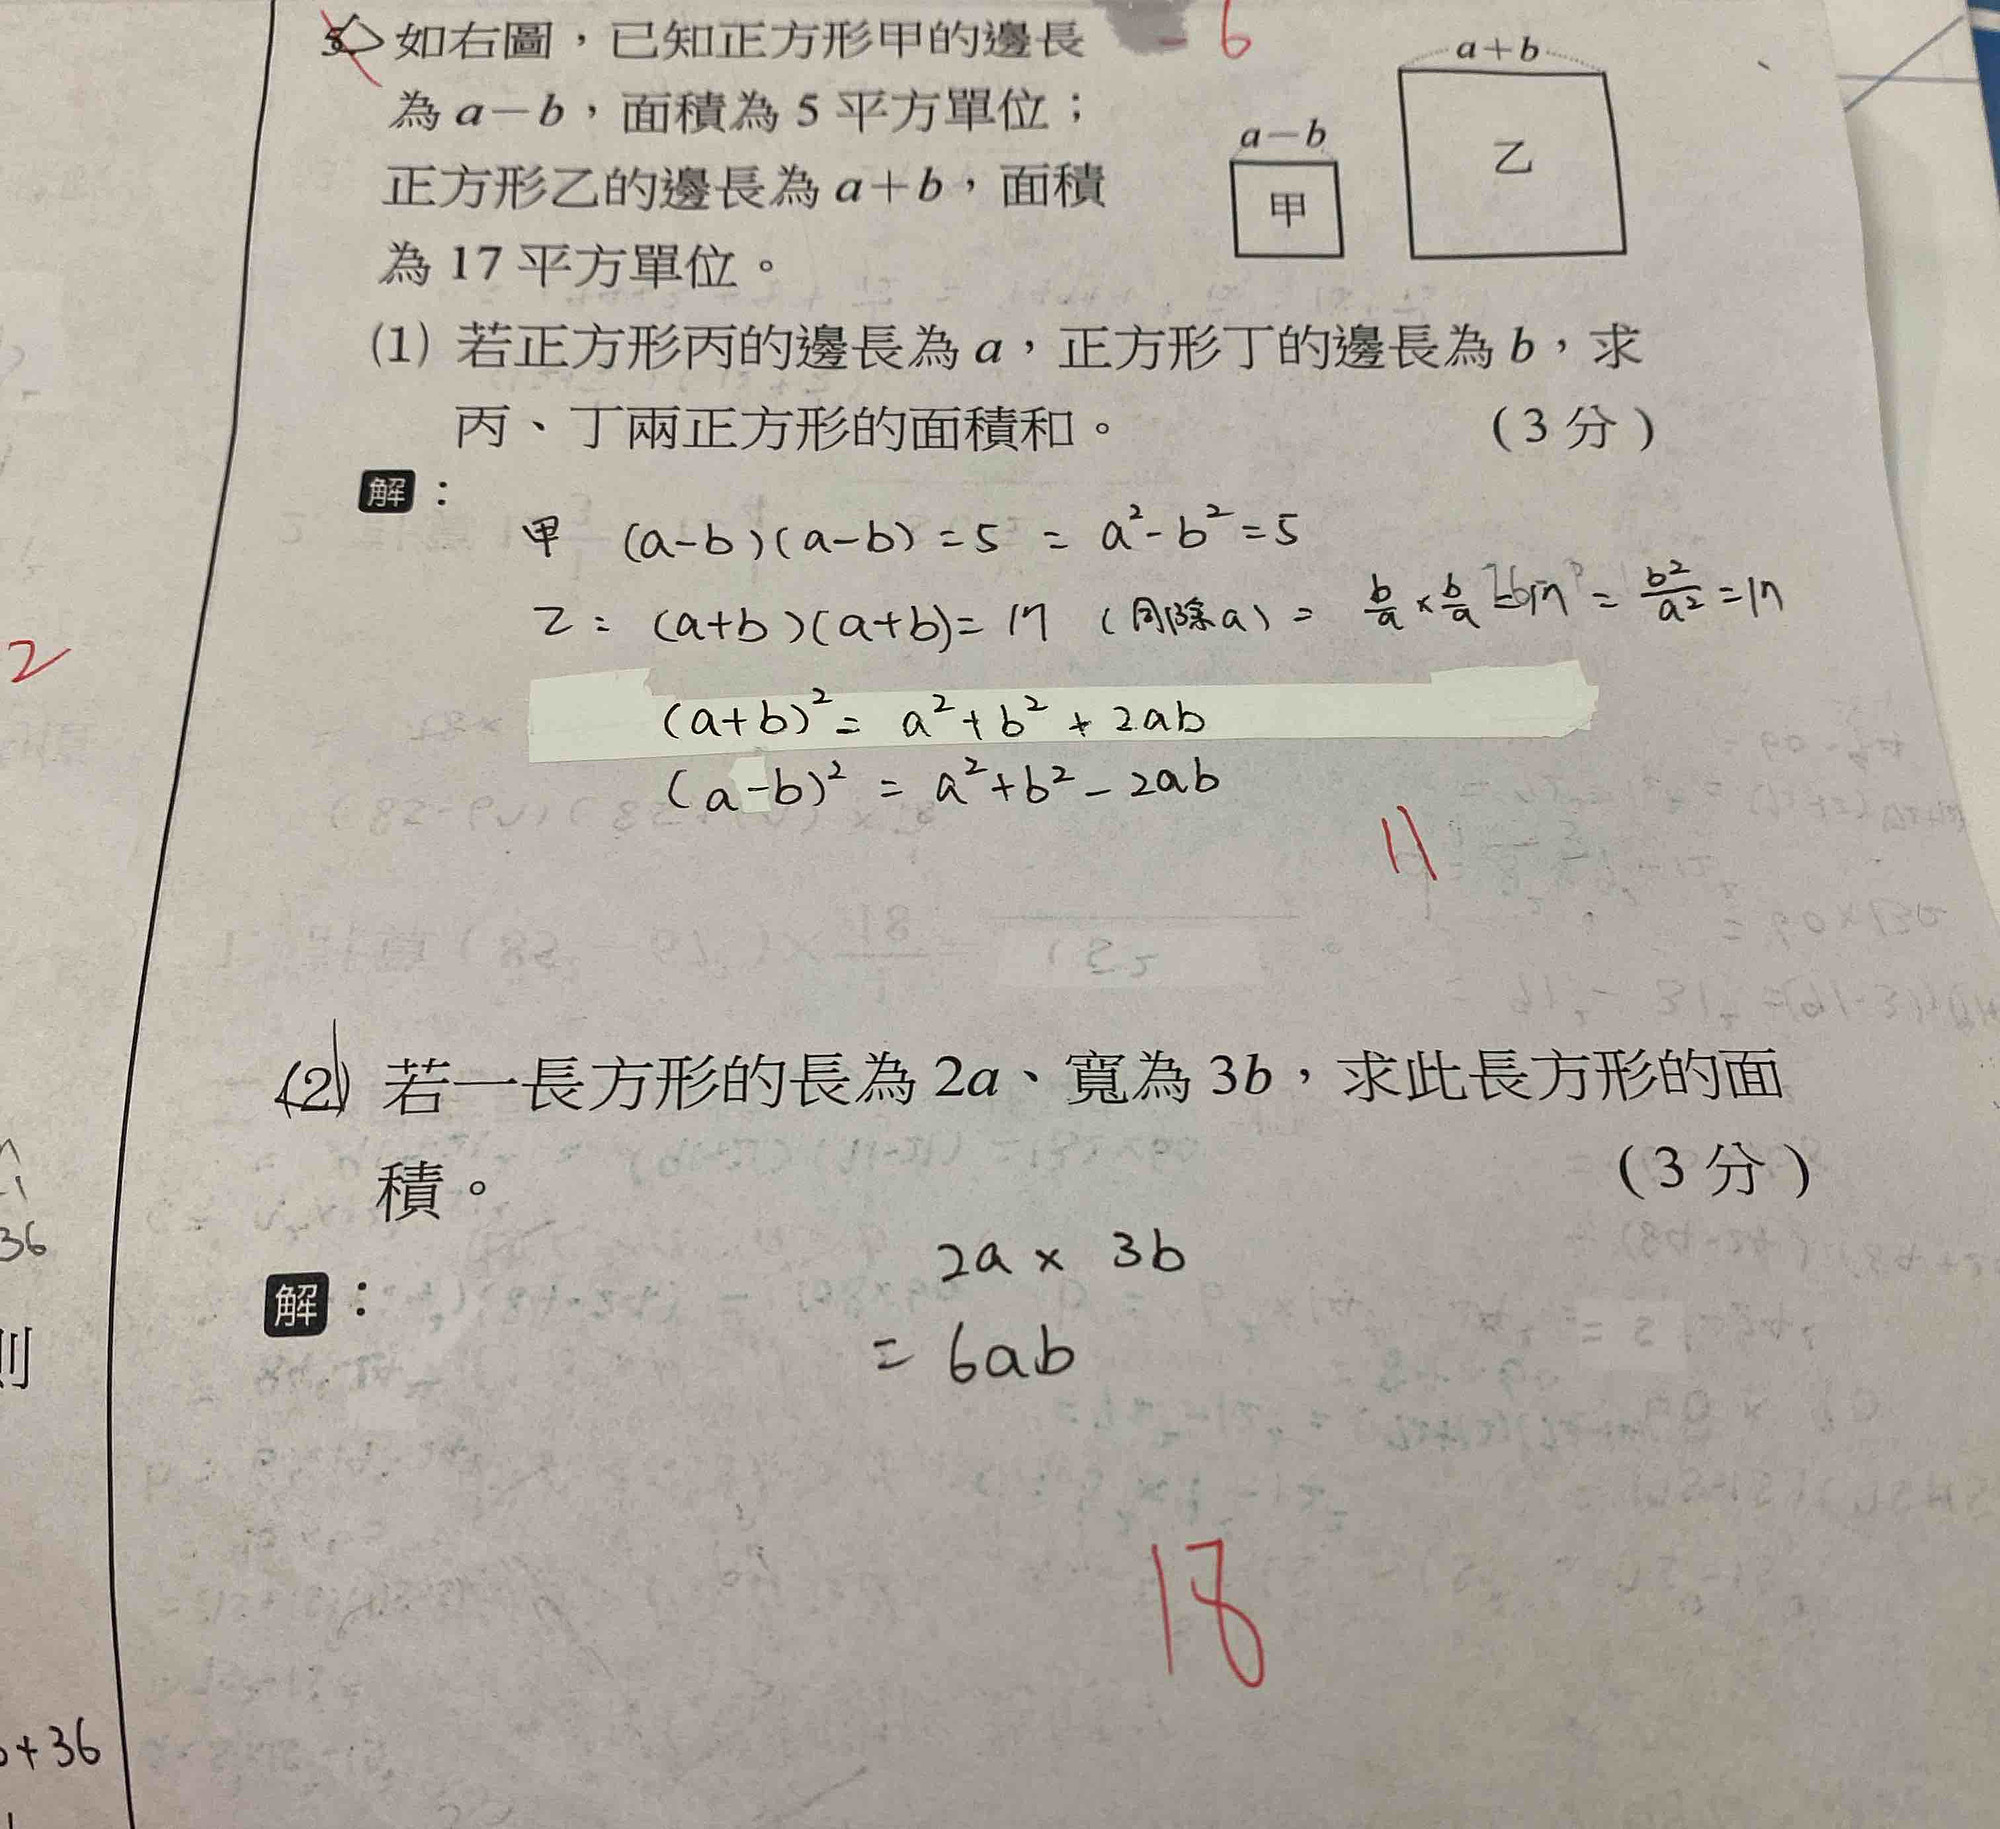 如右圖，已知正方形甲的邊長
為 a－b，面積為 5 平方單位；
正方形乙的邊長為 a＋b，面積
為 17 平方單位。
－6
a＋b
乙
a－b
甲
(1) 若正方形丙的邊長為 a，正方形丁的邊長為 b，求
丙、丁兩正方形的面積和。 (3 分)
解：
甲 (a-b)(a-b)=5 = a²-b²=5
乙: (a+b)(a+b)=17 (同除a) = b/a × b/a = b²/a² =17
(a+b)² = a²+b²+2ab
(a-b)² = a²+b²-2ab
11
(2) 若一長方形的長為 2a、寬為 3b，求此長方形的面
積。 (3 分)
解：
2a × 3b
= 6ab
18
2
36
則
+36